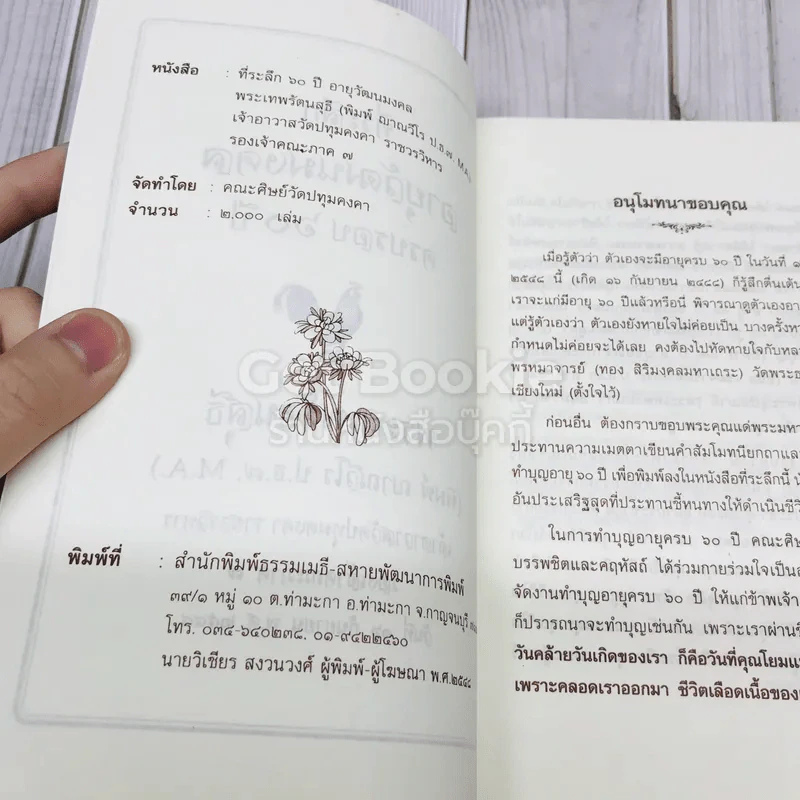 หนังสือ : ที่ระลึก ๖๐ ปี อายุวัฒนมงคล
พระเทพรัตนสุธี (พิมพ์ ญาณวีโร ป.ธ.๗, M.A.)
เจ้าอาวาสวัดปทุมคงคา ราชวรวิหาร
รองเจ้าคณะภาค ๗
จัดทำโดย : คณะศิษย์วัดปทุมคงคา
จำนวน : ๒,๐๐๐ เล่ม
Bookie
ร้านหนังสือบุ๊คกี้
พิมพ์ที่ : สำนักพิมพ์ธรรมเมธี-สหายพัฒนาการพิมพ์
๓๙/๑ หมู่ ๑๐ ต.ท่ามะกา อ.ท่ามะกา จ.กาญจนบุรี
โทร. ๐๓๔-๖๔๐๒๓๘, ๐๑-๙๔๒๒๔๖๐
นายวิเชียร สงวนวงศ์ ผู้พิมพ์-ผู้โฆษณา พ.ศ.๒๕๔๘
อนุโมทนาขอบคุณ
เมื่อรู้ตัวว่า ตัวเองจะมีอายุครบ ๖๐ ปี ในวันที่ ๑
๒๕๔๘ นี้ (เกิด ๑๖ กันยายน ๒๔๘๘) ก็รู้สึกตื่นเต้น
เราจะแก่มีอายุ ๖๐ ปีแล้วหรือนี่ พิจารณาดูตัวเองอา
แต่รู้ตัวเองว่า ตัวเองยังหายใจไม่ค่อยเป็น บางครั้งหา
กำหนดไม่ค่อยจะได้เลย คงต้องไปหัดหายใจกับหล
พรหมาจารย์ (ทอง สิริมงฺคลมหาเถระ) วัดพระธ
เชียงใหม่ (ตั้งใจไว้)
ก่อนอื่น ต้องกราบขอบพระคุณแด่พระมหา
ประทานความเมตตาเขียนคำสัมโมทนียกถาและ
ทำบุญอายุ ๖๐ ปี เพื่อพิมพ์ลงในหนังสือที่ระลึกนี้ นั
อันประเสริฐสุดที่ประทานชี้หนทางให้ดำเนินชีวิ
ในการทำบุญอายุครบ ๖๐ ปี คณะศิษ
บรรพชิตและคฤหัสถ์ ได้ร่วมกายร่วมใจเป็นอ
จัดงานทำบุญอายุครบ ๖๐ ปี ให้แก่ข้าพเจ้า
ก็ปรารถนาจะทำบุญเช่นกัน เพราะเราผ่านชี
วันคล้ายวันเกิดของเรา ก็คือวันที่คุณโยมแม
เพราะคลอดเราออกมา ชีวิตเลือดเนื้อของ